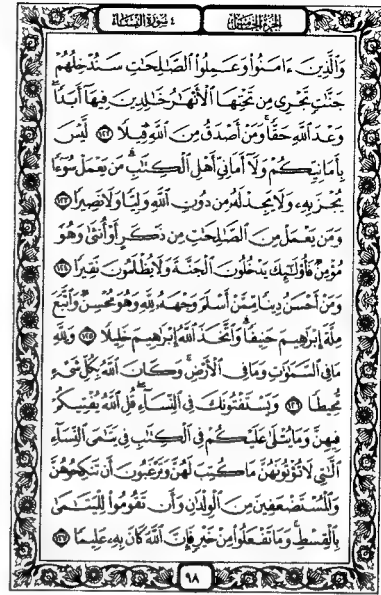 الجزء الخامس ٤ سورة النساء
وَٱلَّذِينَ ءَامَنُوا۟ وَعَمِلُوا۟ ٱلصَّـٰلِحَـٰتِ سَنُدْخِلُهُمْ
جَنَّـٰتٍ تَجْرِى مِن تَحْتِهَا ٱلْأَنْهَـٰرُ خَـٰلِدِينَ فِيهَآ أَبَدًا ۖ
وَعْدَ ٱللَّهِ حَقًّا ۚ وَمَنْ أَصْدَقُ مِنَ ٱللَّهِ قِيلًا ١٢٢ لَّيْسَ
بِأَمَانِيِّكُمْ وَلَآ أَمَانِىِّ أَهْلِ ٱلْكِتَـٰبِ ۗ مَن يَعْمَلْ سُوٓءًا
يُجْزَ بِهِۦ وَلَا يَجِدْ لَهُۥ مِن دُونِ ٱللَّهِ وَلِيًّا وَلَا نَصِيرًا ١٢٣
وَمَن يَعْمَلْ مِنَ ٱلصَّـٰلِحَـٰتِ مِن ذَكَرٍ أَوْ أُنثَىٰ وَهُوَ
مُؤْمِنٌ فَأُو۟لَـٰٓئِكَ يَدْخُلُونَ ٱلْجَنَّةَ وَلَا يُظْلَمُونَ نَقِيرًا ١٢٤
وَمَنْ أَحْسَنُ دِينًا مِّمَّنْ أَسْلَمَ وَجْهَهُۥ لِلَّهِ وَهُوَ مُحْسِنٌ وَٱتَّبَعَ
مِلَّةَ إِبْرَٰهِيمَ حَنِيفًا ۗ وَٱتَّخَذَ ٱللَّهُ إِبْرَٰهِيمَ خَلِيلًا ١٢٥ وَلِلَّهِ
مَا فِى ٱلسَّمَـٰوَٰتِ وَمَا فِى ٱلْأَرْضِ ۚ وَكَانَ ٱللَّهُ بِكُلِّ شَىْءٍ
مُّحِيطًا ١٢٦ وَيَسْتَفْتُونَكَ فِى ٱلنِّسَآءِ ۖ قُلِ ٱللَّهُ يُفْتِيكُمْ
فِيهِنَّ وَمَا يُتْلَىٰ عَلَيْكُمْ فِى ٱلْكِتَـٰبِ فِى يَتَـٰمَى ٱلنِّسَآءِ
ٱلَّـٰتِى لَا تُؤْتُونَهُنَّ مَا كُتِبَ لَهُنَّ وَتَرْغَبُونَ أَن تَنكِحُوهُنَّ
وَٱلْمُسْتَضْعَفِينَ مِنَ ٱلْوِلْدَٰنِ وَأَن تَقُومُوا۟ لِلْيَتَـٰمَىٰ
بِٱلْقِسْطِ ۚ وَمَا تَفْعَلُوا۟ مِنْ خَيْرٍ فَإِنَّ ٱللَّهَ كَانَ بِهِۦ عَلِيمًا ١٢٧
٩٨